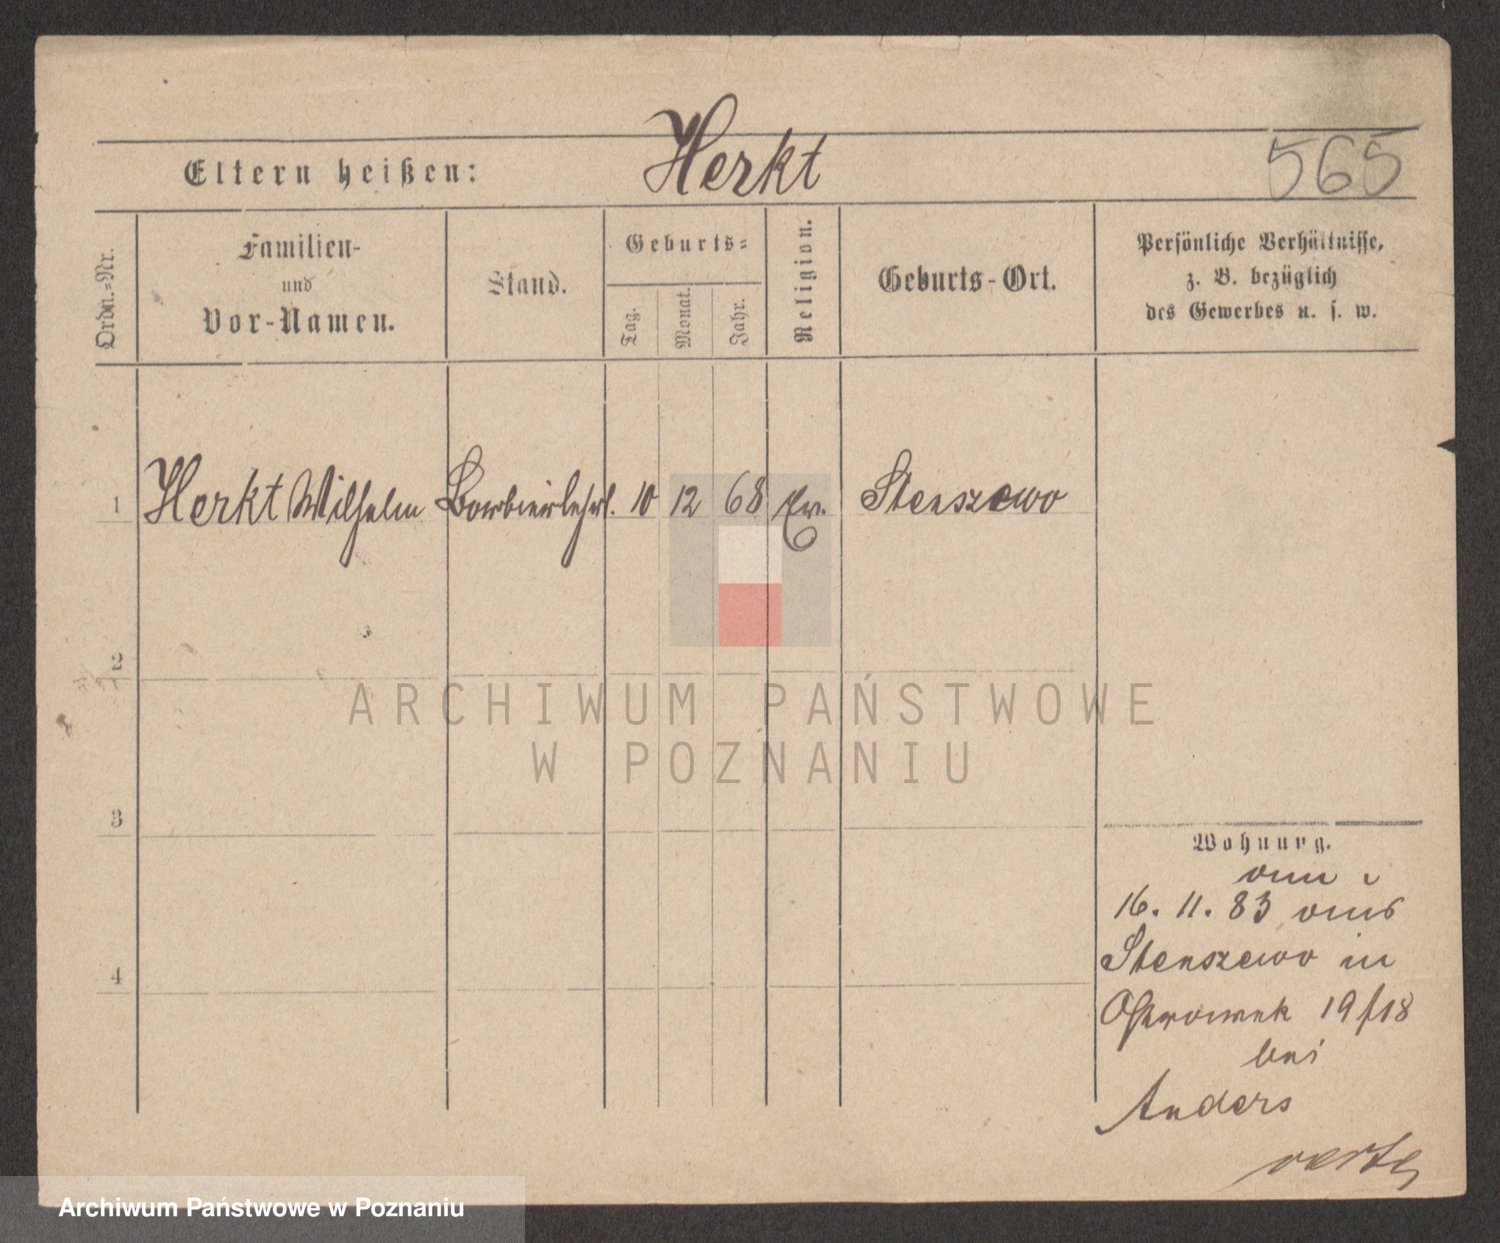 Eltern heißen: Herkt 565
Ordn.-Nr.
Familien-
und
Vor-Namen.
Stand.
Geburts-
Tag.
Monat.
Jahr.
Religion.
Geburts-Ort.
Persönliche Verhältnisse,
z. B. bezüglich
des Gewerbes u. s. w.
1 Herkt Wilhelm Barbierlehrl. 10 12 68 Ev. Stenszewo
2
3
4
Wohnung.
am
16. 11. 83 aus
Stenszewo in
Ostrowek 19/18
bei
Anders
ARCHIWUM PAŃSTWOWE
W POZNANIU
Archiwum Państwowe w Poznaniu